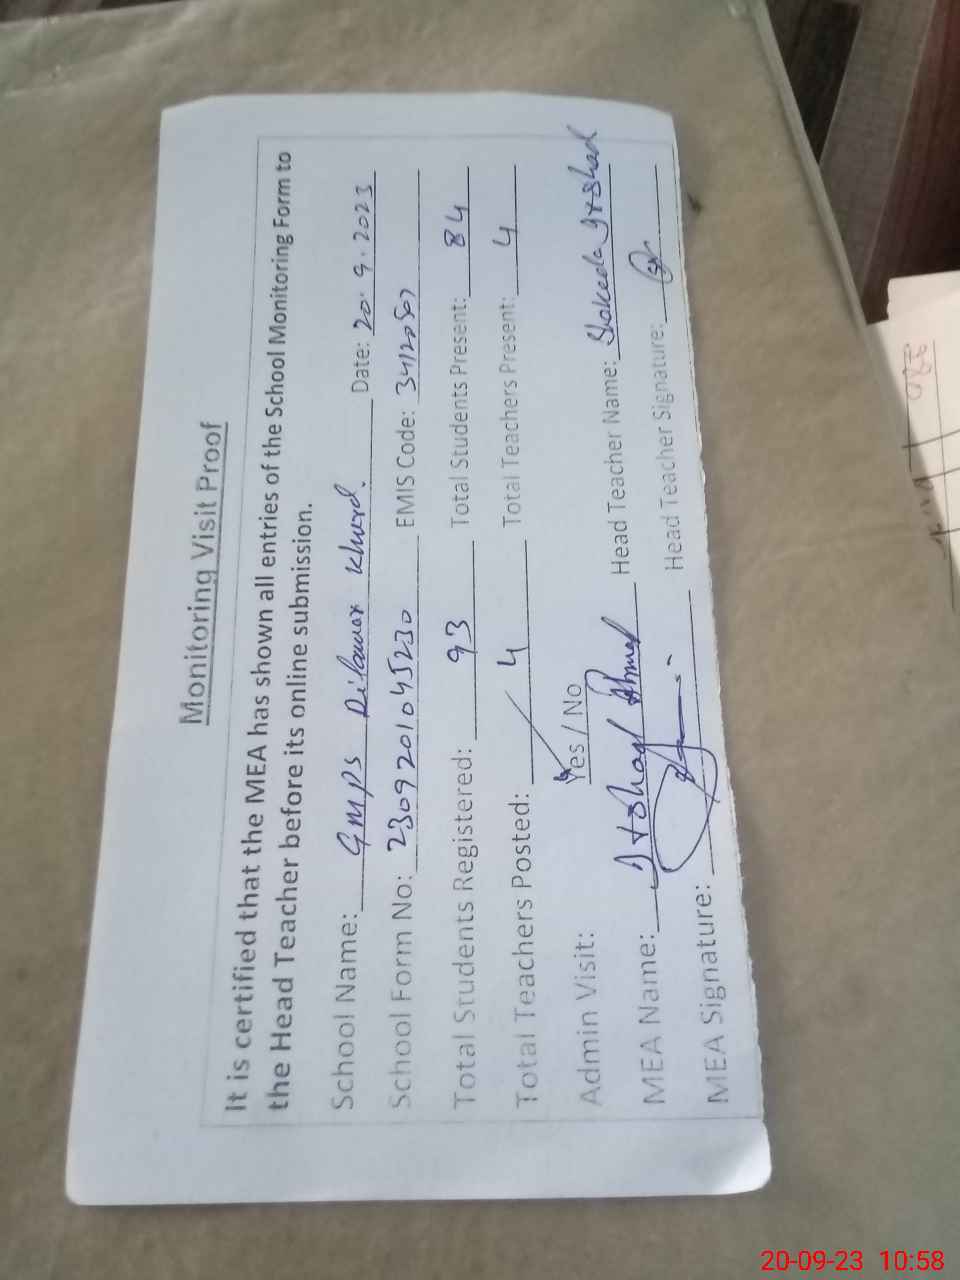 Monitoring Visit Proof
It is certified that the MEA has shown all entries of the School Monitoring Form to
the Head Teacher before its online submission.
School Name: GMPS Dilawar Khurd. Date: 20.9.2023
School Form No: 2309201045230 EMIS Code:
Total Students Registered: 93 Total Students Present: 84
Total Teachers Posted: 4 Total Teachers Present: 4
Admin Visit: Yes / No
MEA Name: Ahmed Head Teacher Name: Shakeela Irshad
MEA Signature: Head Teacher Signature:
20-09-23 10:58